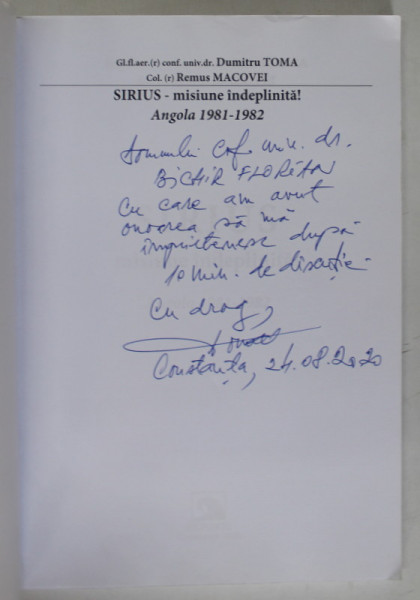 Gl.fl.aer.(r) conf. univ.dr. Dumitru TOMA
Col. (r) Remus MACOVEI
SIRIUS - misiune îndeplinită!
Angola 1981-1982
Domnului Cof. univ. dr.
BICHIR FLORIAN
cu care am avut
onoarea să mă
împrietenesc după
10 min. de discuție
Cu drag,
Constanța, 24.08.2020